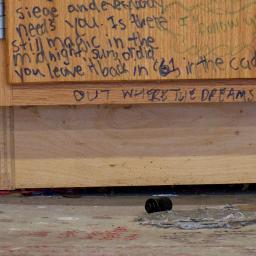 siege and everybody
needs you. Is there
still magic in the
midnight sun, or did
you leave it back in '61, in the cad
OUT WHERE THE DREAMS